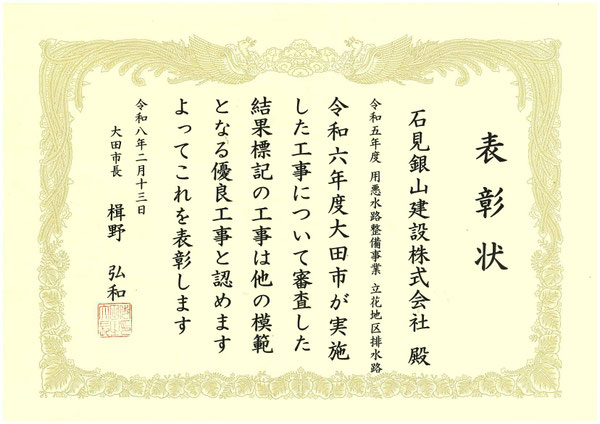 表彰状
石見銀山建設株式会社 殿
令和五年度 用悪水路整備事業 立花地区排水路
令和六年度大田市が実施
した工事について審査した
結果標記の工事は他の模範
となる優良工事と認めます
よってこれを表彰します
令和八年二月十三日
大田市長 楫野 弘和